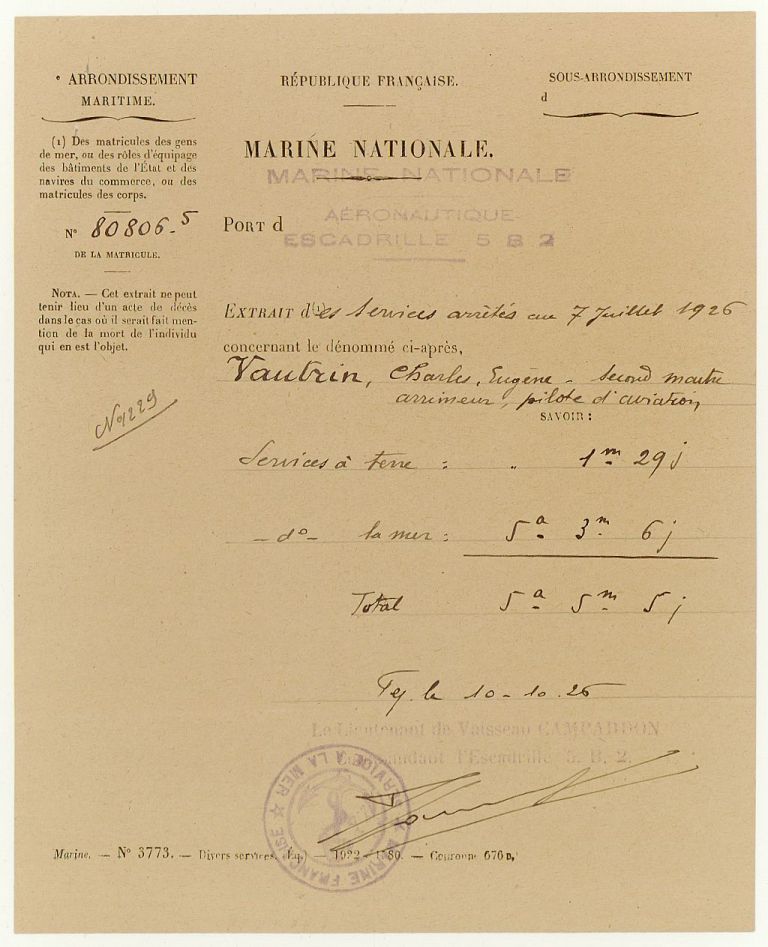 e ARRONDISSEMENT
MARITIME.
(1) Des matricules des gens
de mer, ou des rôles d'équipage
des bâtiments de l'État et des
navires du commerce, ou des
matricules des corps.
N° 80806-5
DE LA MATRICULE.
NOTA. — Cet extrait ne peut
tenir lieu d'un acte de décès
dans le cas où il serait fait men-
tion de la mort de l'individu
qui en est l'objet.
N° 1229
RÉPUBLIQUE FRANÇAISE.
SOUS-ARRONDISSEMENT
d
MARINE NATIONALE.
MARINE NATIONALE
AÉRONAUTIQUE
PORT d
ESCADRILLE 5 B 2
EXTRAIT d(1)es Services arrêtés au 7 Juillet 1926
concernant le dénommé ci-après,
Vautrin, Charles, Eugène - second maître
arrimeur, pilote d'aviation
SAVOIR :
Services à terre : " 1m 29j
- d° - la mer : 5a 3m 6j
Total 5a 5m 5j
le 10-10-26
Le Lieutenant de Vaisseau CAMPARDON
Commandant l'Escadrille 5. B. 2.
MARINE FRANÇAISE ★ SERVICE A LA MER ★
Marine. — N° 3773. — Divers services. (Éq.) — 1922 - 1580. — Couronne 676 B.